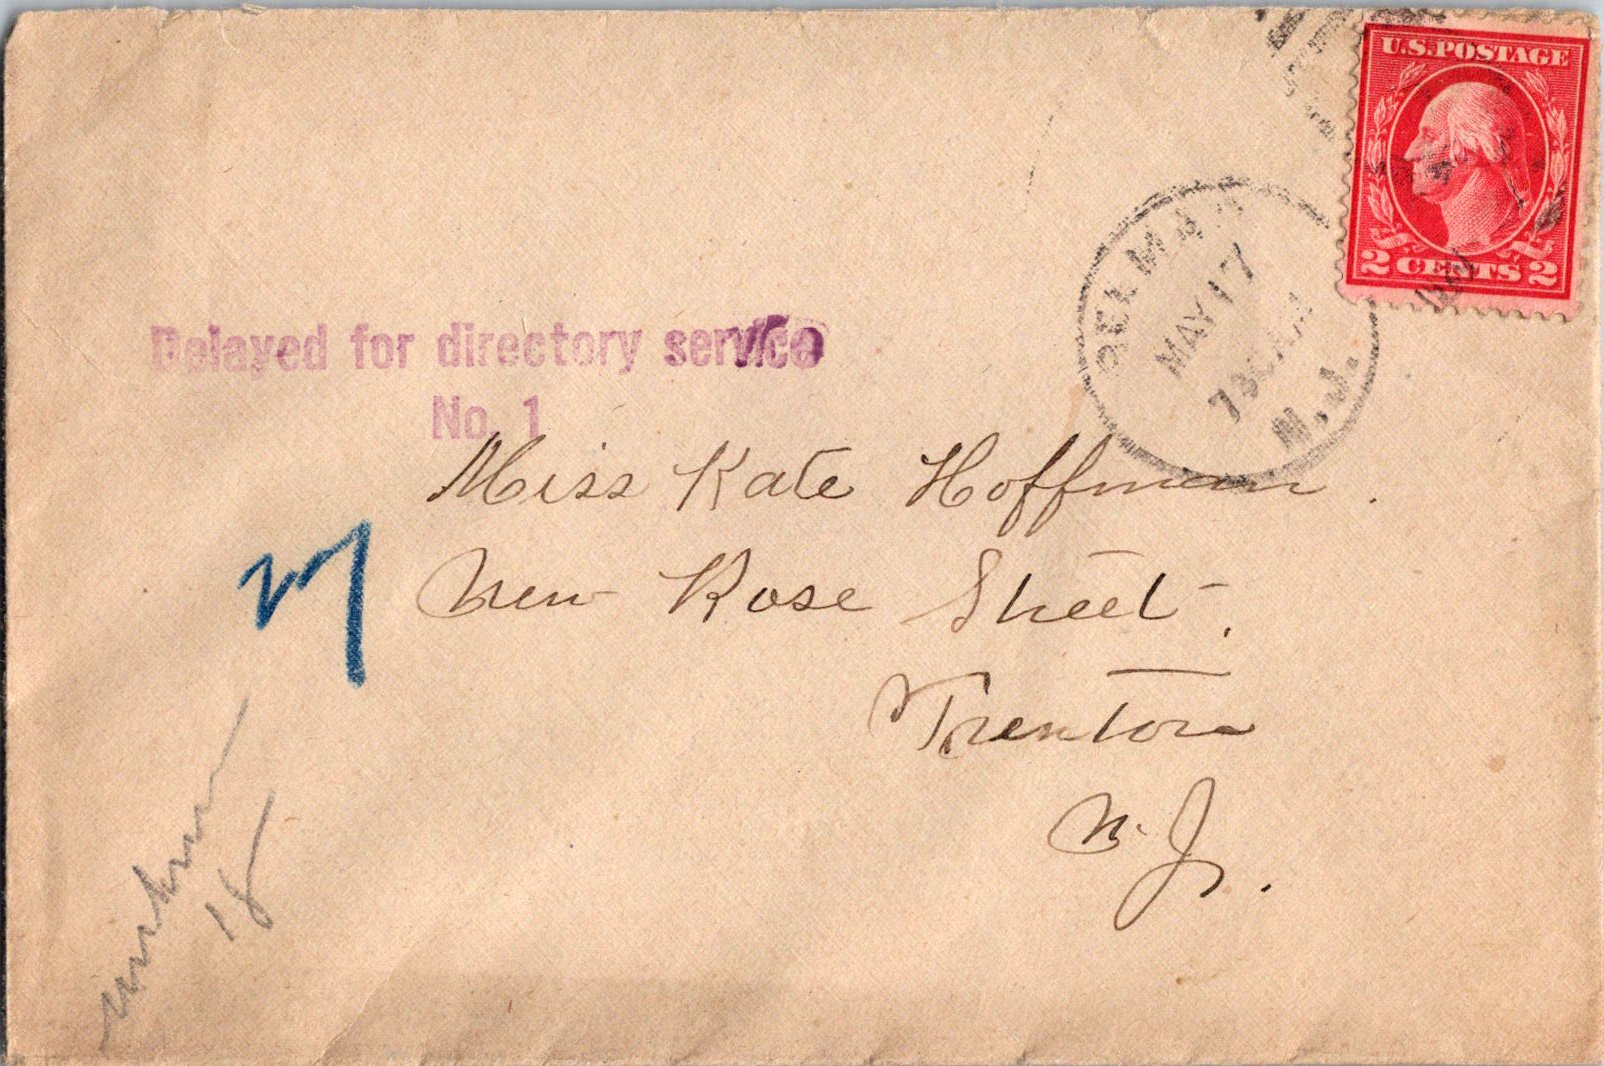 U.S. POSTAGE
2 CENTS 2
MAY 17
N.J.
Delayed for directory service
No. 1
Miss Kate Hoffman.
New Rose Street.
Trenton
N. J.
unknown
18